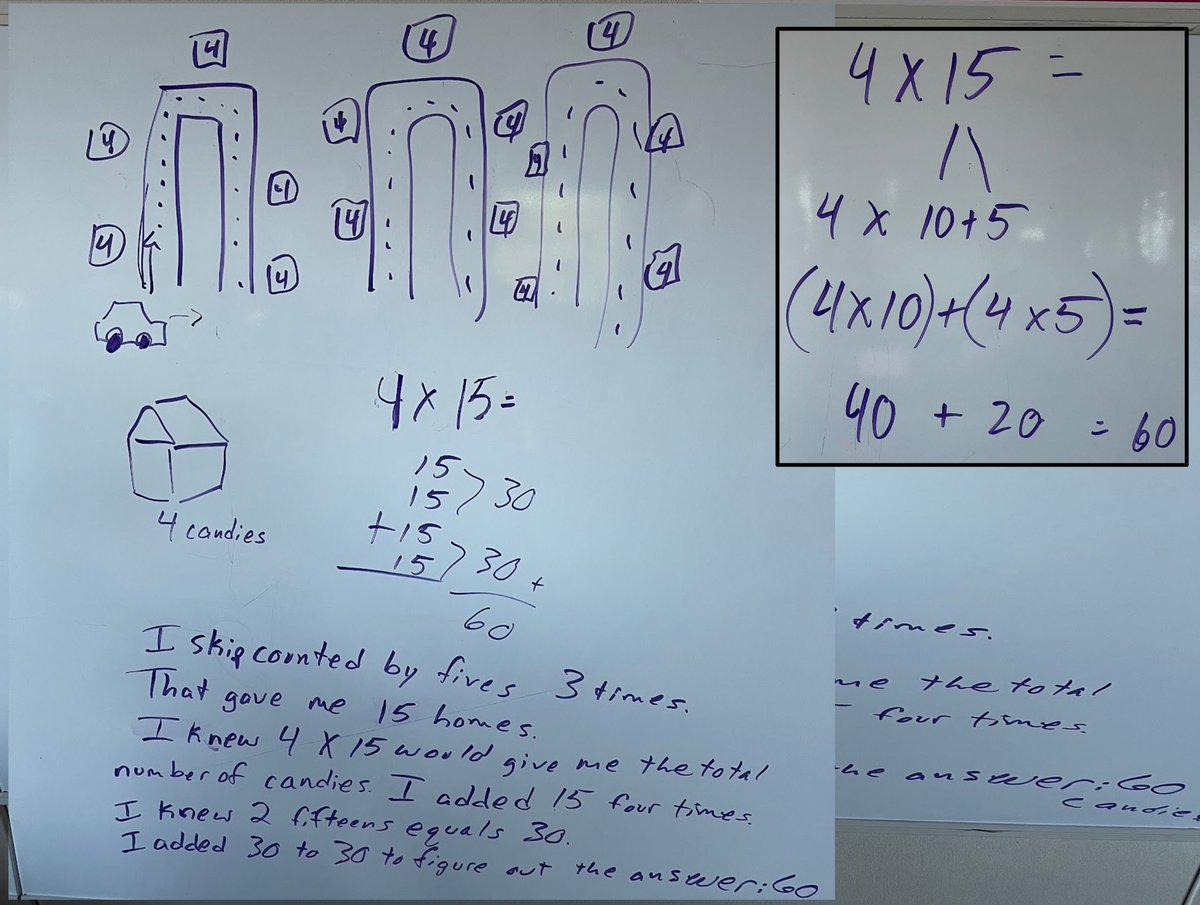 4 4 4
4 4 4 4 4
4 4 4 4 4
4 4
4 X 15 =
4 X 10+5
(4X10)+(4X5)=
40 + 20 = 60
4 X 15=
15
15 > 30
+15
15 > 30 +
60
4 candies
I skip counted by fives 3 times.
That gave me 15 homes.
I knew 4 X 15 would give me the total
number of candies. I added 15 four times.
I knew 2 fifteens equals 30.
I added 30 to 30 to figure out the answer: 60
times.
me the total
four times.
the answer: 60
candies